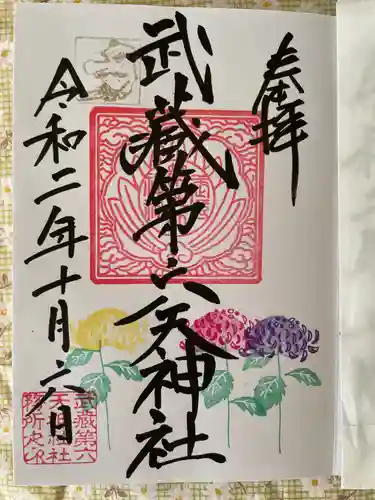 奉拝
武蔵第六天神社
令和二年十月六日
武蔵第六
天神社
務所之印